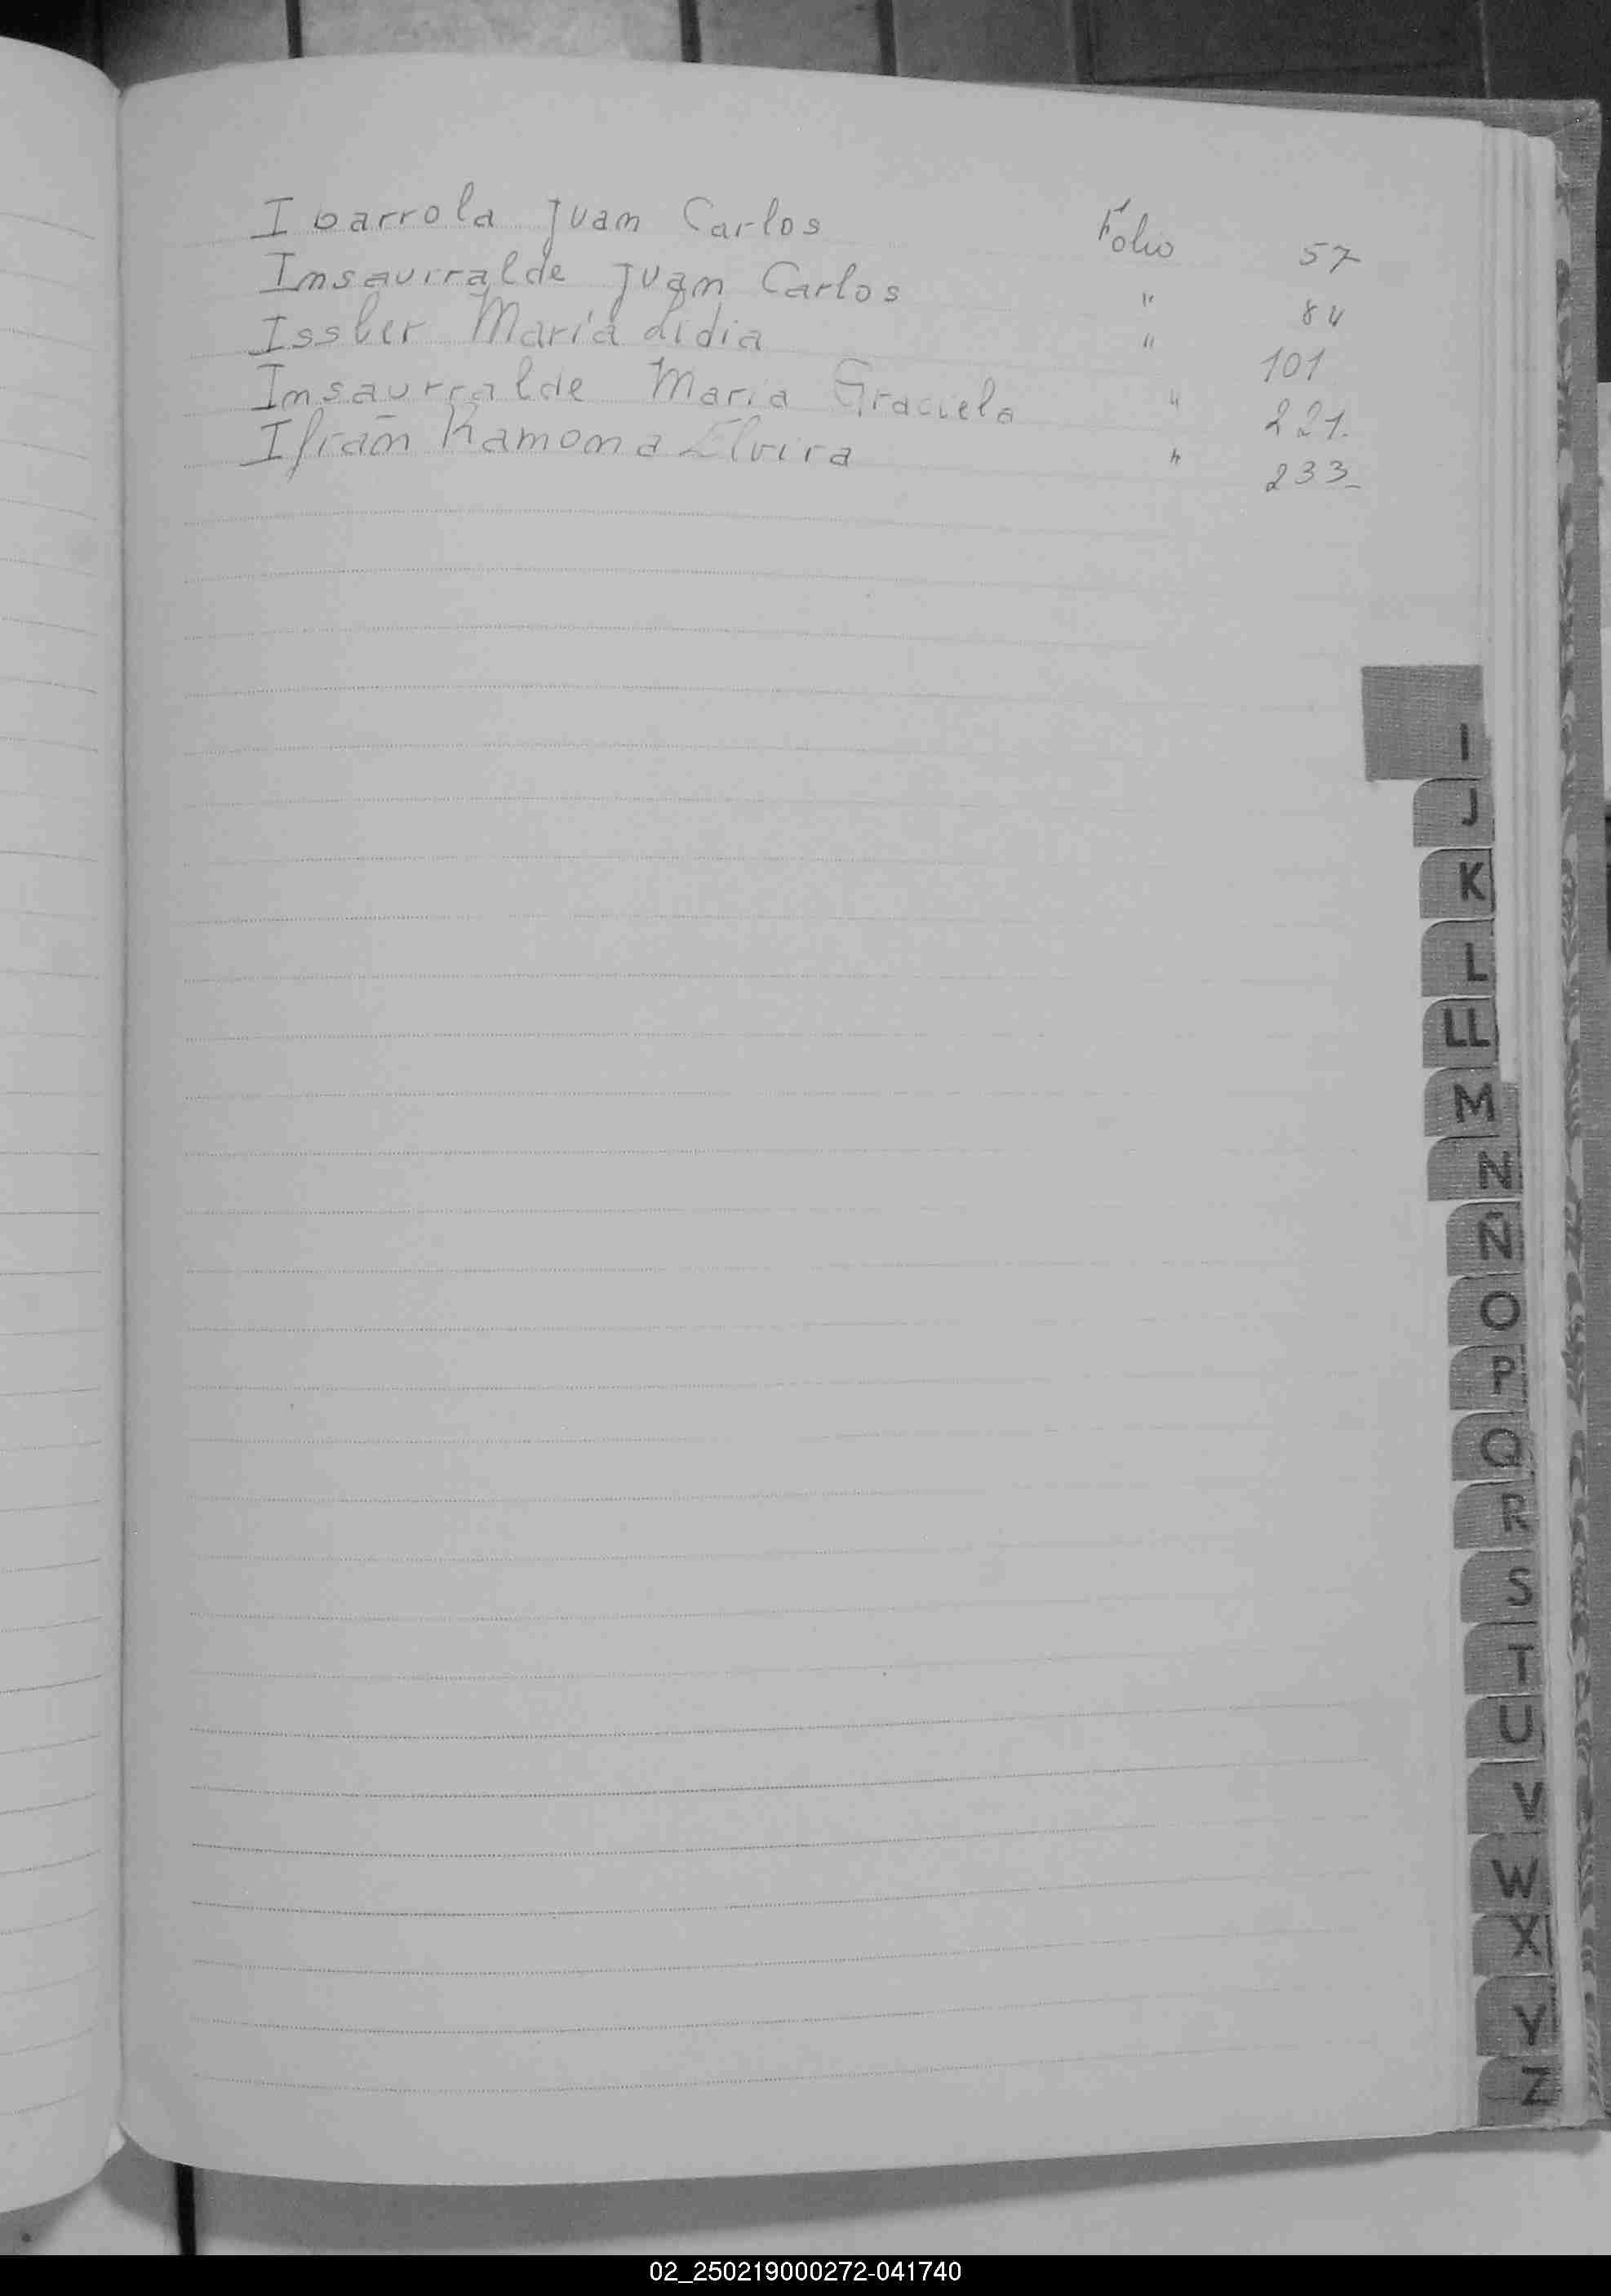 Ibarrola Juan Carlos Folio 57
Insaurralde Juan Carlos " 84
Issler María Lidia " 101
Insaurralde Maria Graciela " 221.
Ifrán Ramona Elvira " 233_
I
J
K
L
LL
M
N
Ñ
O
P
Q
R
S
T
U
V
W
X
Y
Z
02_250219000272-041740